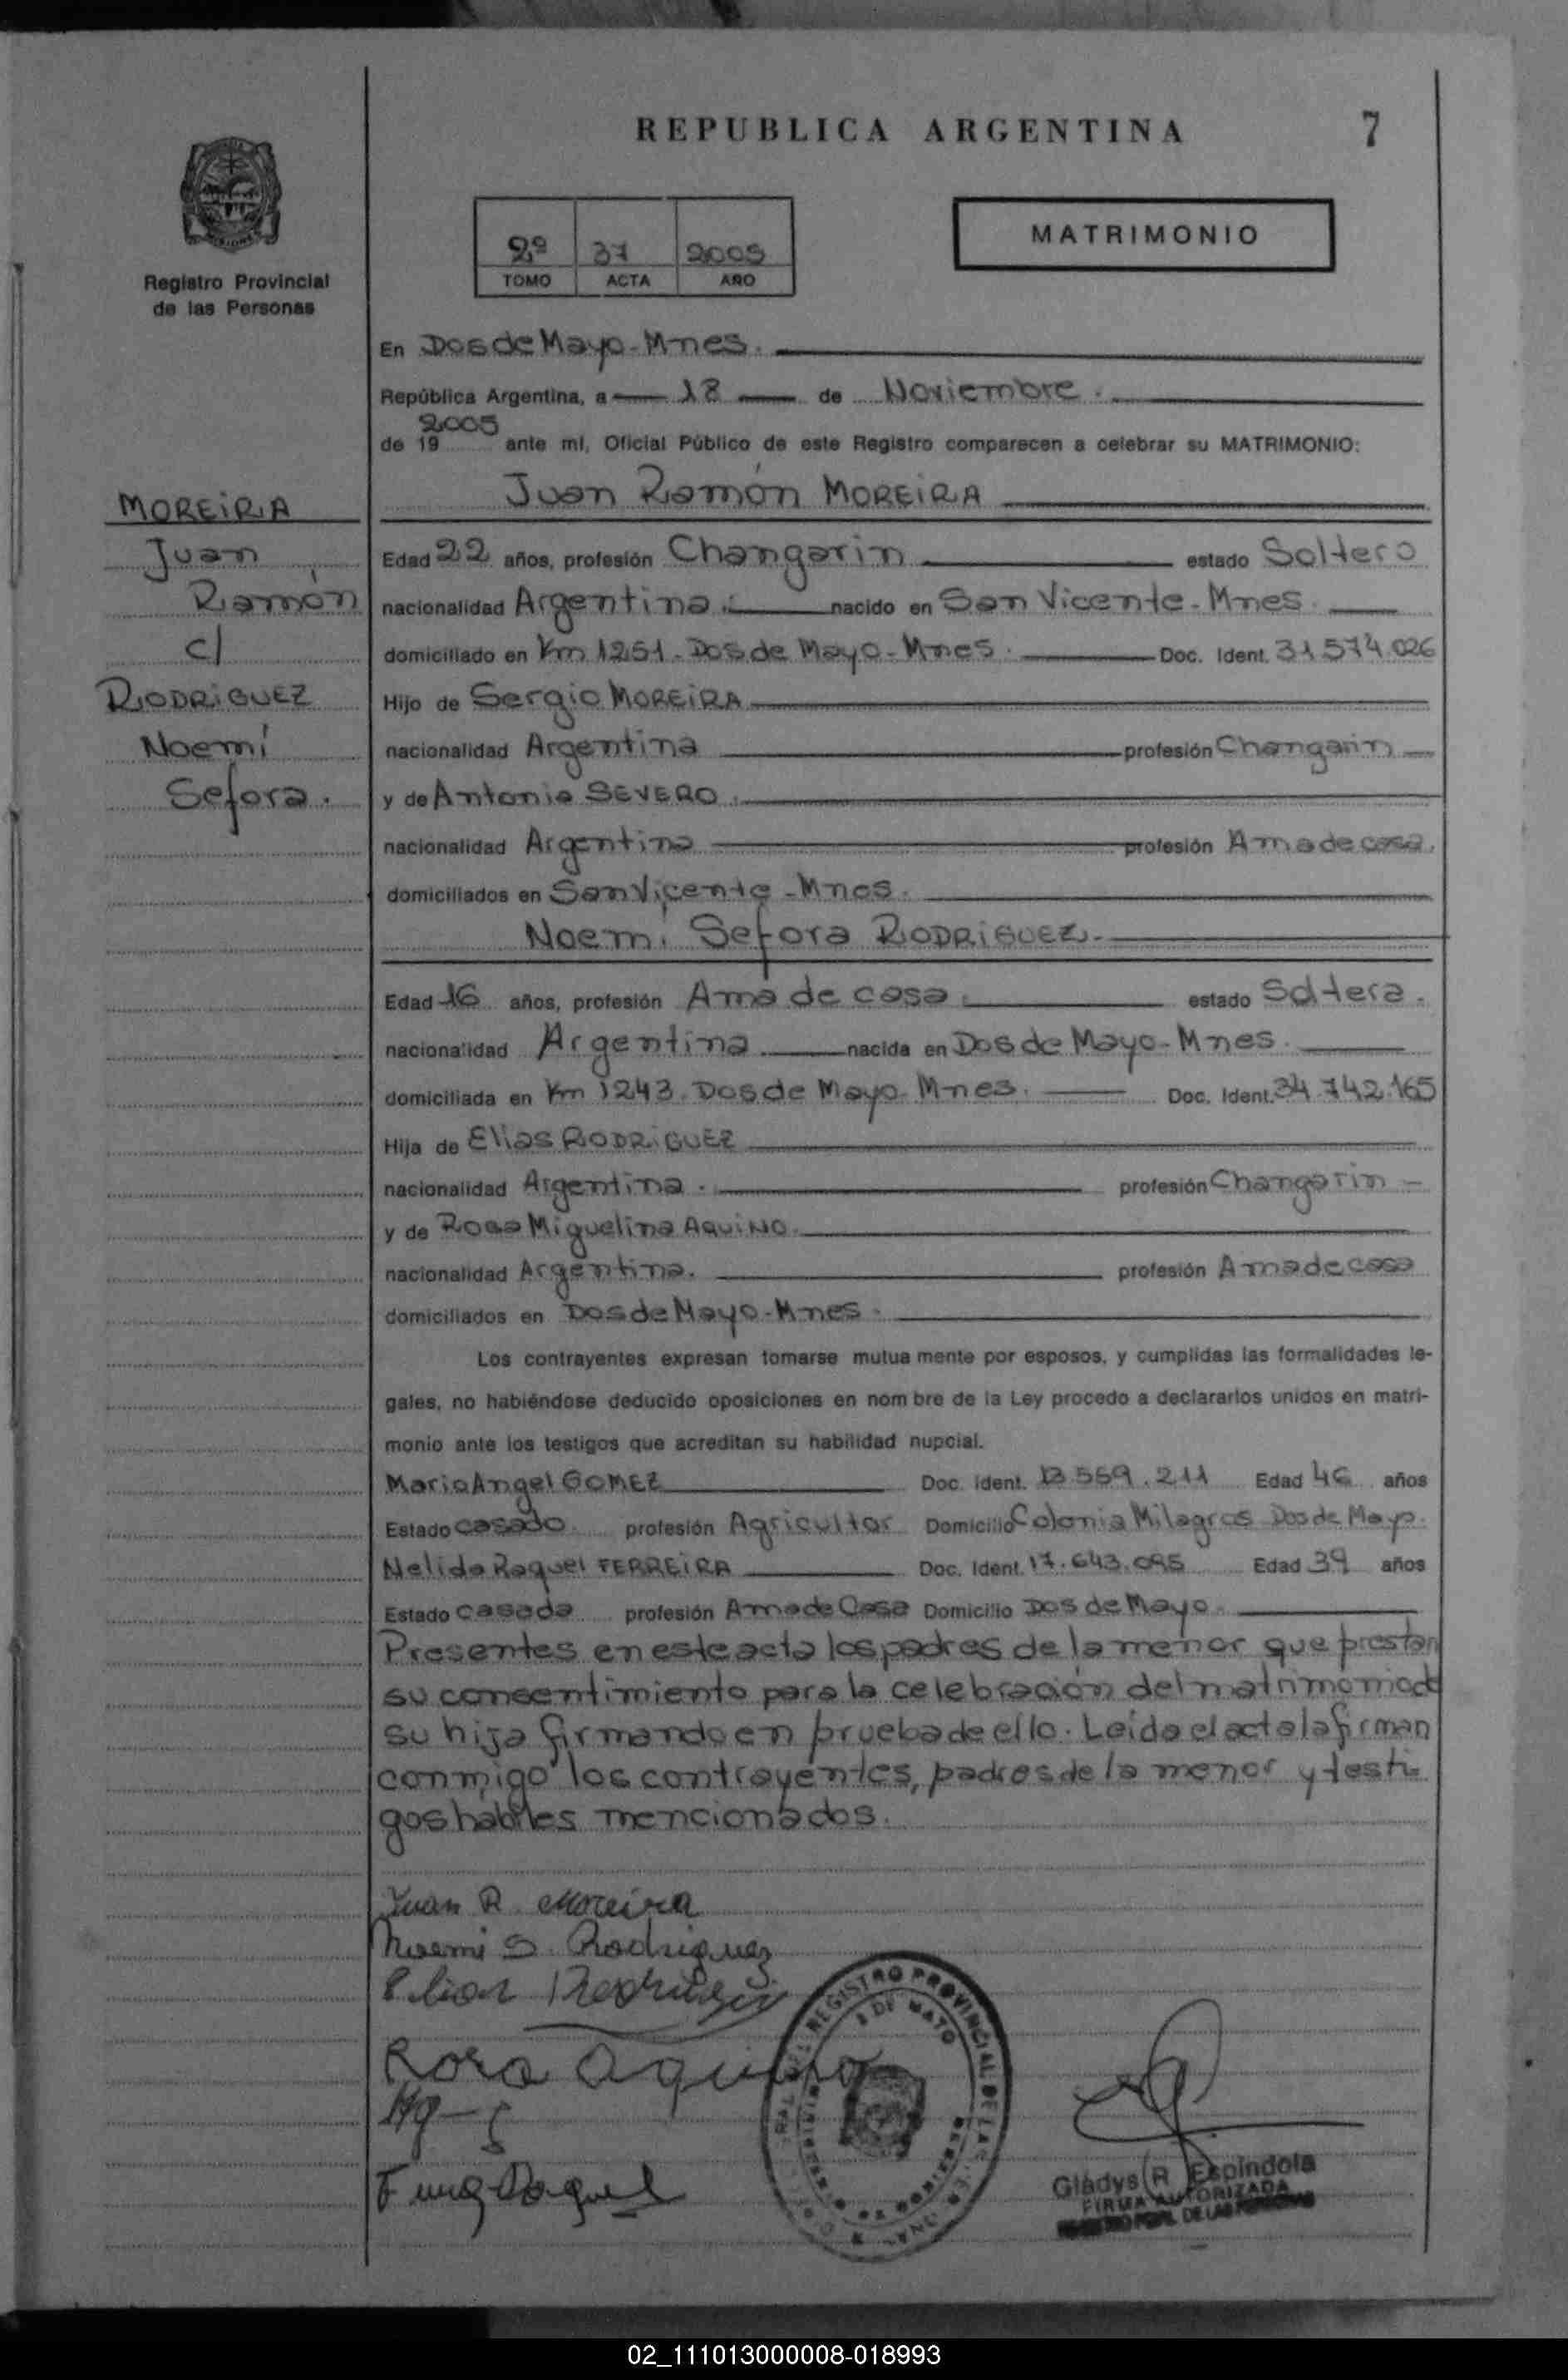 REPUBLICA ARGENTINA 7
2º 37 2005
TOMO ACTA AÑO
MATRIMONIO
Registro Provincial
de las Personas
En Dos de Mayo - Mnes.
República Argentina, a 18 de Noviembre.
de 19 2005 ante mí, Oficial Público de este Registro comparecen a celebrar su MATRIMONIO:
Juan Ramón MOREIRA
MOREIRA
Juan
Ramón
c/
RODRIGUEZ
Noemí
Sefora.
Edad 22 años, profesión Changarin estado Soltero
nacionalidad Argentina. nacido en San Vicente - Mnes.
domiciliado en Km 1251 - Dos de Mayo - Mnes. Doc. Ident. 31.574.026
Hijo de Sergio MOREIRA
nacionalidad Argentina profesión Changarin
y de Antonia SEVERO.
nacionalidad Argentina profesión Ama de casa.
domiciliados en San Vicente - Mnes.
Noemí Sefora RODRIGUEZ.
Edad 16 años, profesión Ama de casa. estado Soltera.
nacionalidad Argentina nacida en Dos de Mayo - Mnes.
domiciliada en Km 1243. Dos de Mayo - Mnes. Doc. Ident. 34.742.165
Hija de Elias RODRIGUEZ
nacionalidad Argentina. profesión Changarin
y de Rosa Miguelina AQUINO.
nacionalidad Argentina. profesión Ama de casa
domiciliados en Dos de Mayo - Mnes.
Los contrayentes expresan tomarse mutua mente por esposos, y cumplidas las formalidades le-
gales, no habiéndose deducido oposiciones en nom bre de la Ley procedo a declararlos unidos en matri-
monio ante los testigos que acreditan su habilidad nupcial.
Mario Angel GOMEZ Doc. Ident. 13.559.211 Edad 46 años
Estado casado profesión Agricultor Domicilio Colonia Milagros Dos de Mayo.
Nelida Raquel FERREIRA Doc. Ident. 17.643.095 Edad 39 años
Estado casada profesión Ama de Casa Domicilio Dos de Mayo.
Presentes en este acto los padres de la menor que prestan
su consentimiento para la celebración del matrimonio de
su hija firmando en prueba de ello. Leida el acta la firman
conmigo los contrayentes, padres de la menor y testi=
gos habiles mencionados.
Juan R. Moreira
Noemi S. Rodriguez
Elias Rodriguez
Rosa Aquino
REGISTRO PROVINCIAL DE LAS
DE MAYO
Gladys R. Espindola
FIRMA AUTORIZADA
02_111013000008-018993